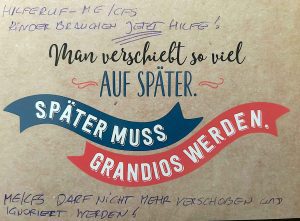 HILFERUF - ME/CFS
KINDER BRAUCHEN JETZT HILFE!
Man verschiebt so viel
AUF SPÄTER.
SPÄTER MUSS
GRANDIOS WERDEN.
ME/CFS DARF NICHT MEHR VERSCHOBEN UND
IGNORIERT WERDEN!